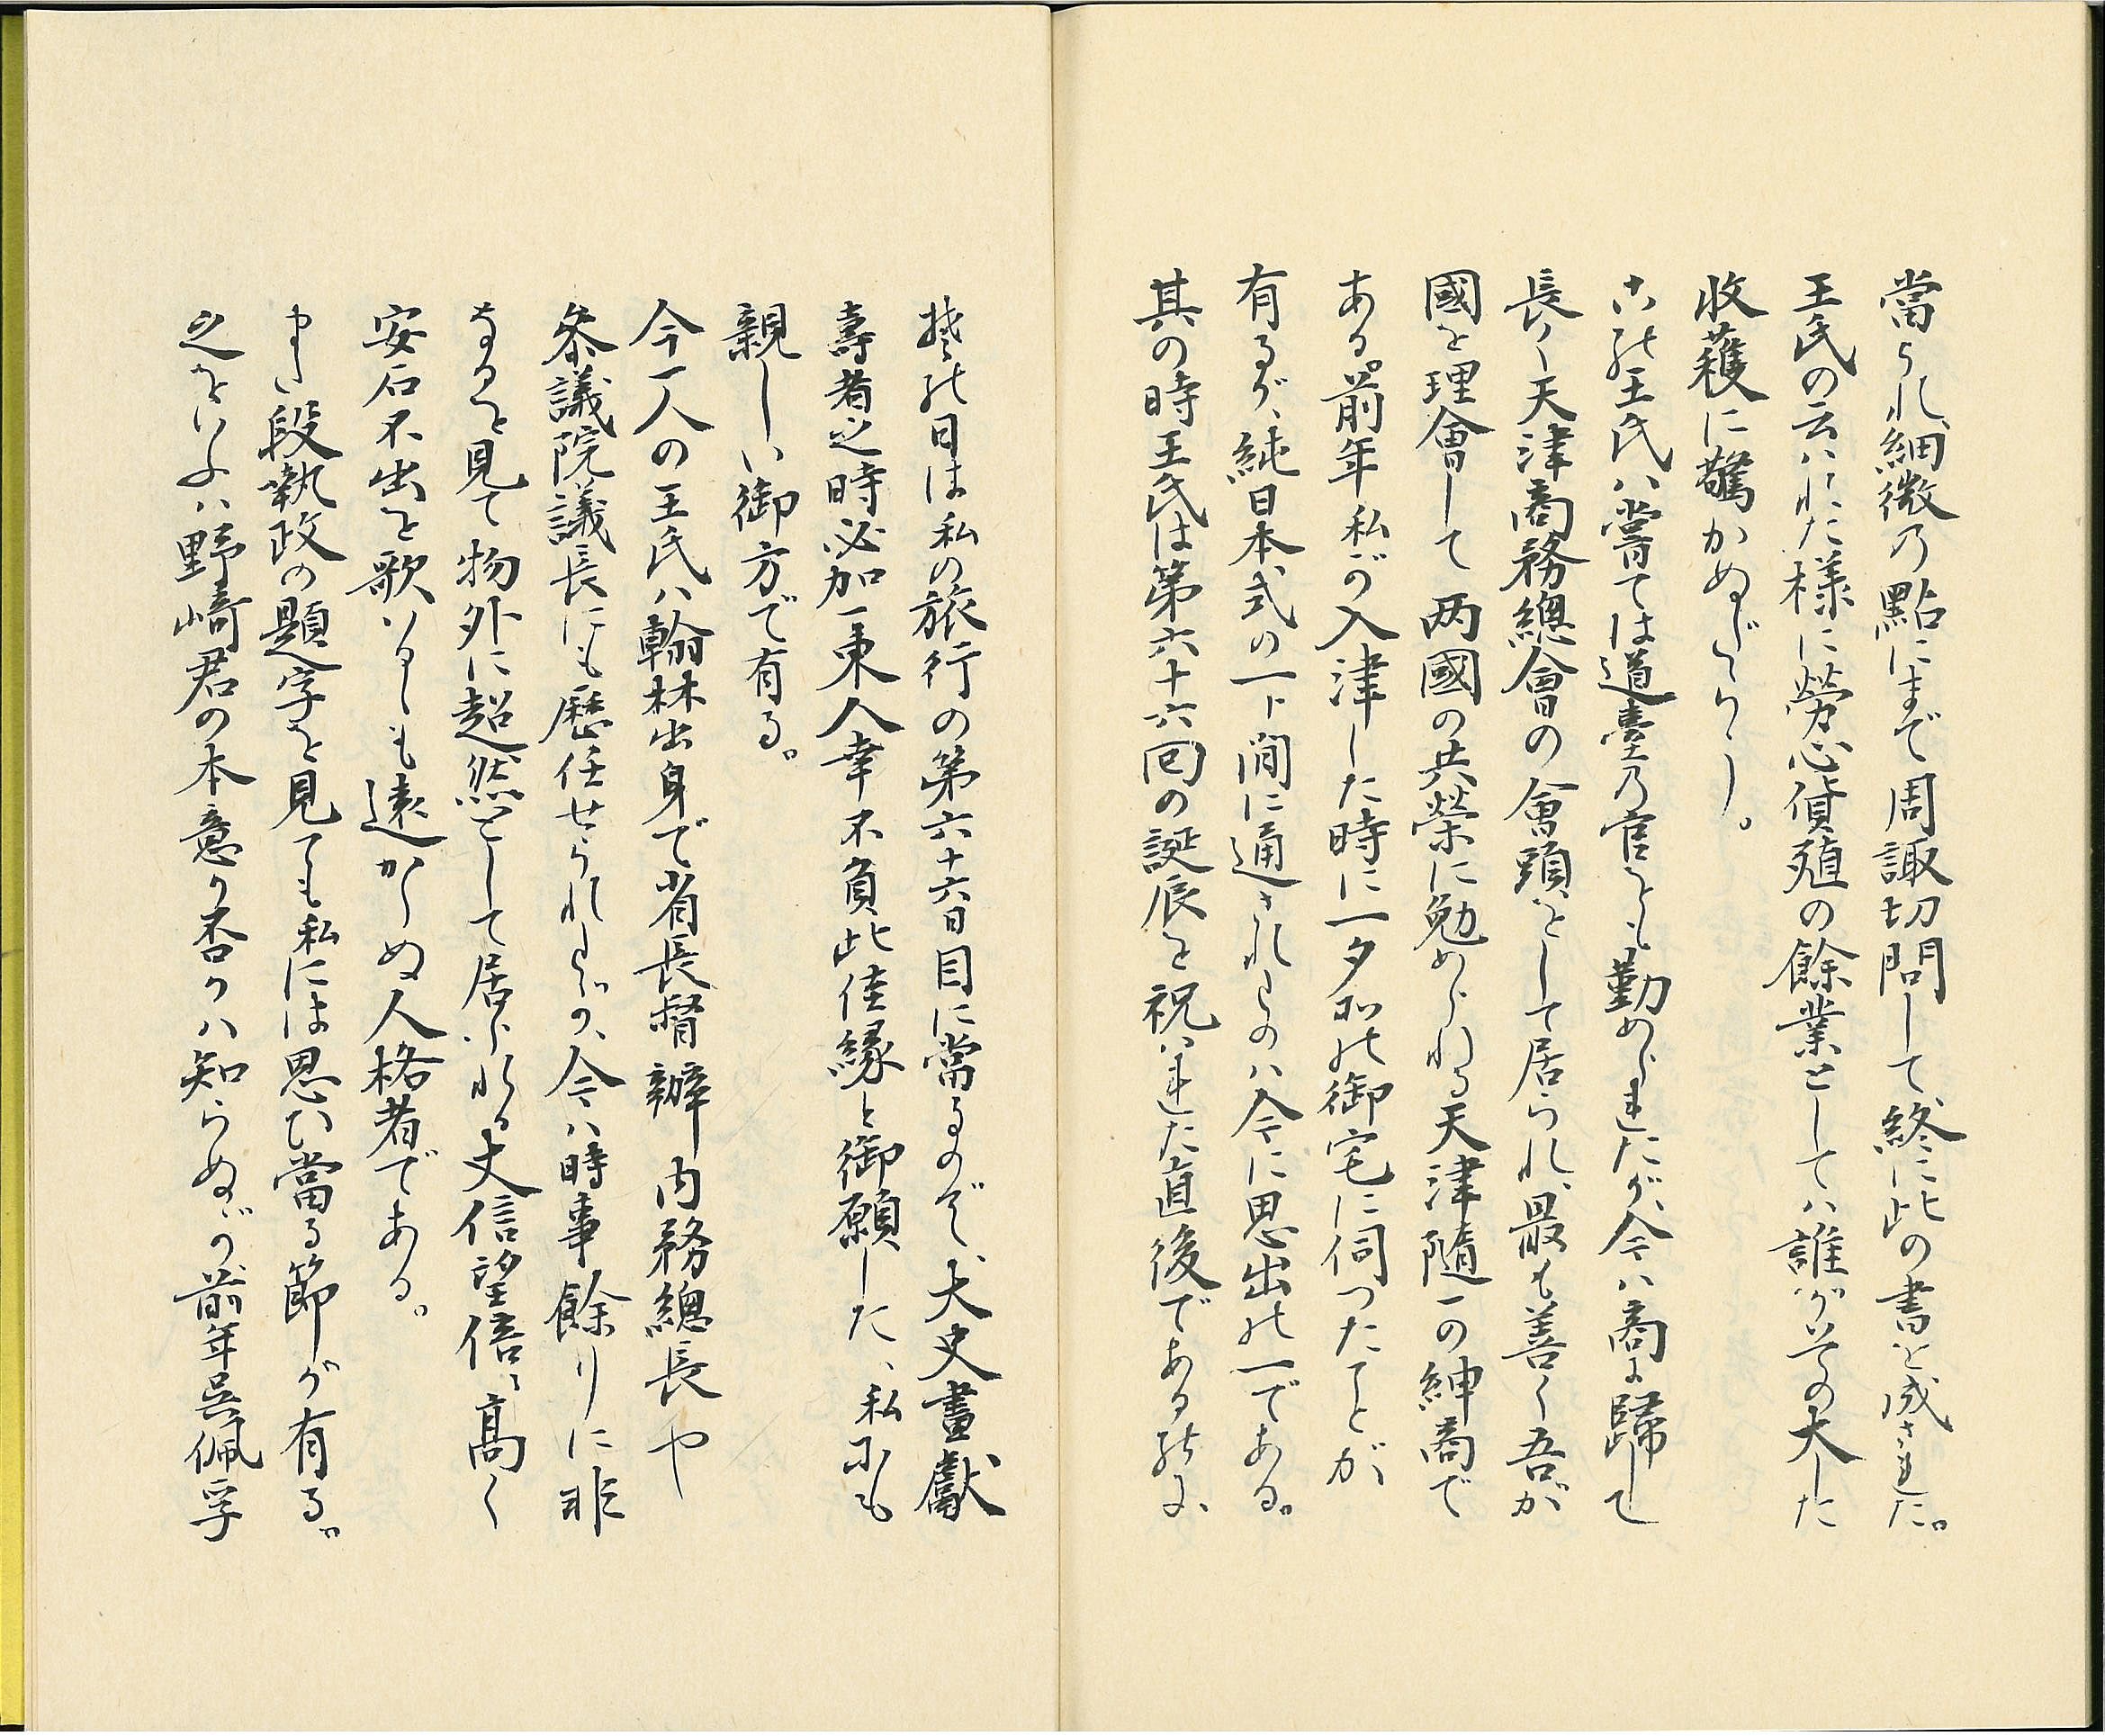 當られ、細微の點にまで周諏切問して、終に此の書を成された。
王氏の云はれた様に勞心貨殖の餘業としては誰がその大した
收穫に驚かぬだらうし。
この王氏は嘗ては道臺の官をも勤められたが、今は商に歸して
長く天津商務總會の會頭をして居られ、最も善く吾が
國を理會して两國の共榮に勉められる天津隨一の紳商で
ある。前年私が入津した時に一夕その御宅に伺つたことが
有るが、純日本式の一ト間に通されたのは今に思出の一である。
其の時王氏は第六十六回の誕辰を祝はれた直後であるのに、
其の日は私の旅行の第六十六日目に當るので、犬史畫獻
壽者之時必加一東人幸不負此佳縁と御願した、私にも
親しい御方で有る。
今一人の王氏は翰林出身で省長督辦内務總長や
參議院議長にも歷任せられたが、今は時事餘りに非
なるを見て物外に超然として居られる丈信望倍々高く
安石不出を歌はるゝも遠からぬ人格者である。
まゝ段執政の題字を見ても私には思ひ當る節が有る。
之をいふは野崎君の本意か否かは知らぬが前年呉佩孚